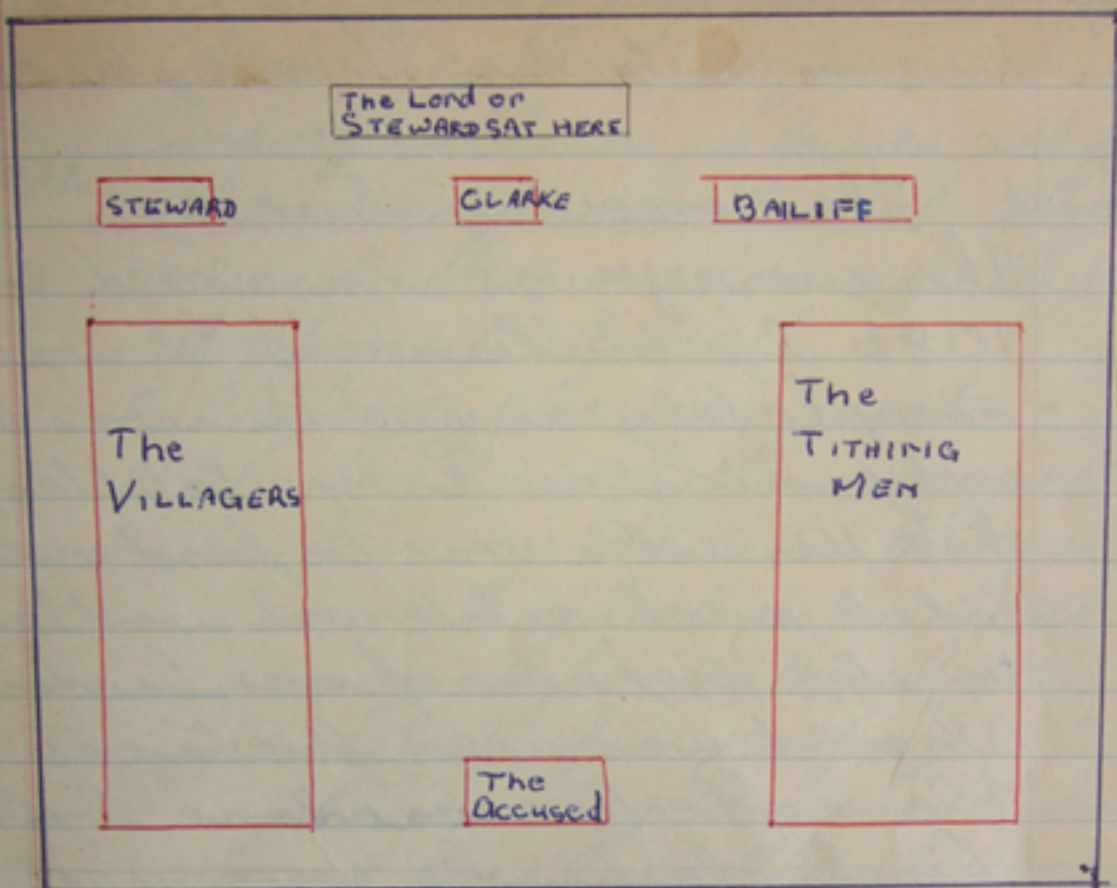 The Lord or
STEWARD SAT HERE
STEWARD
CLARKE
BAILIFF
The
VILLAGERS
The
TITHING
MEN
The
Accused